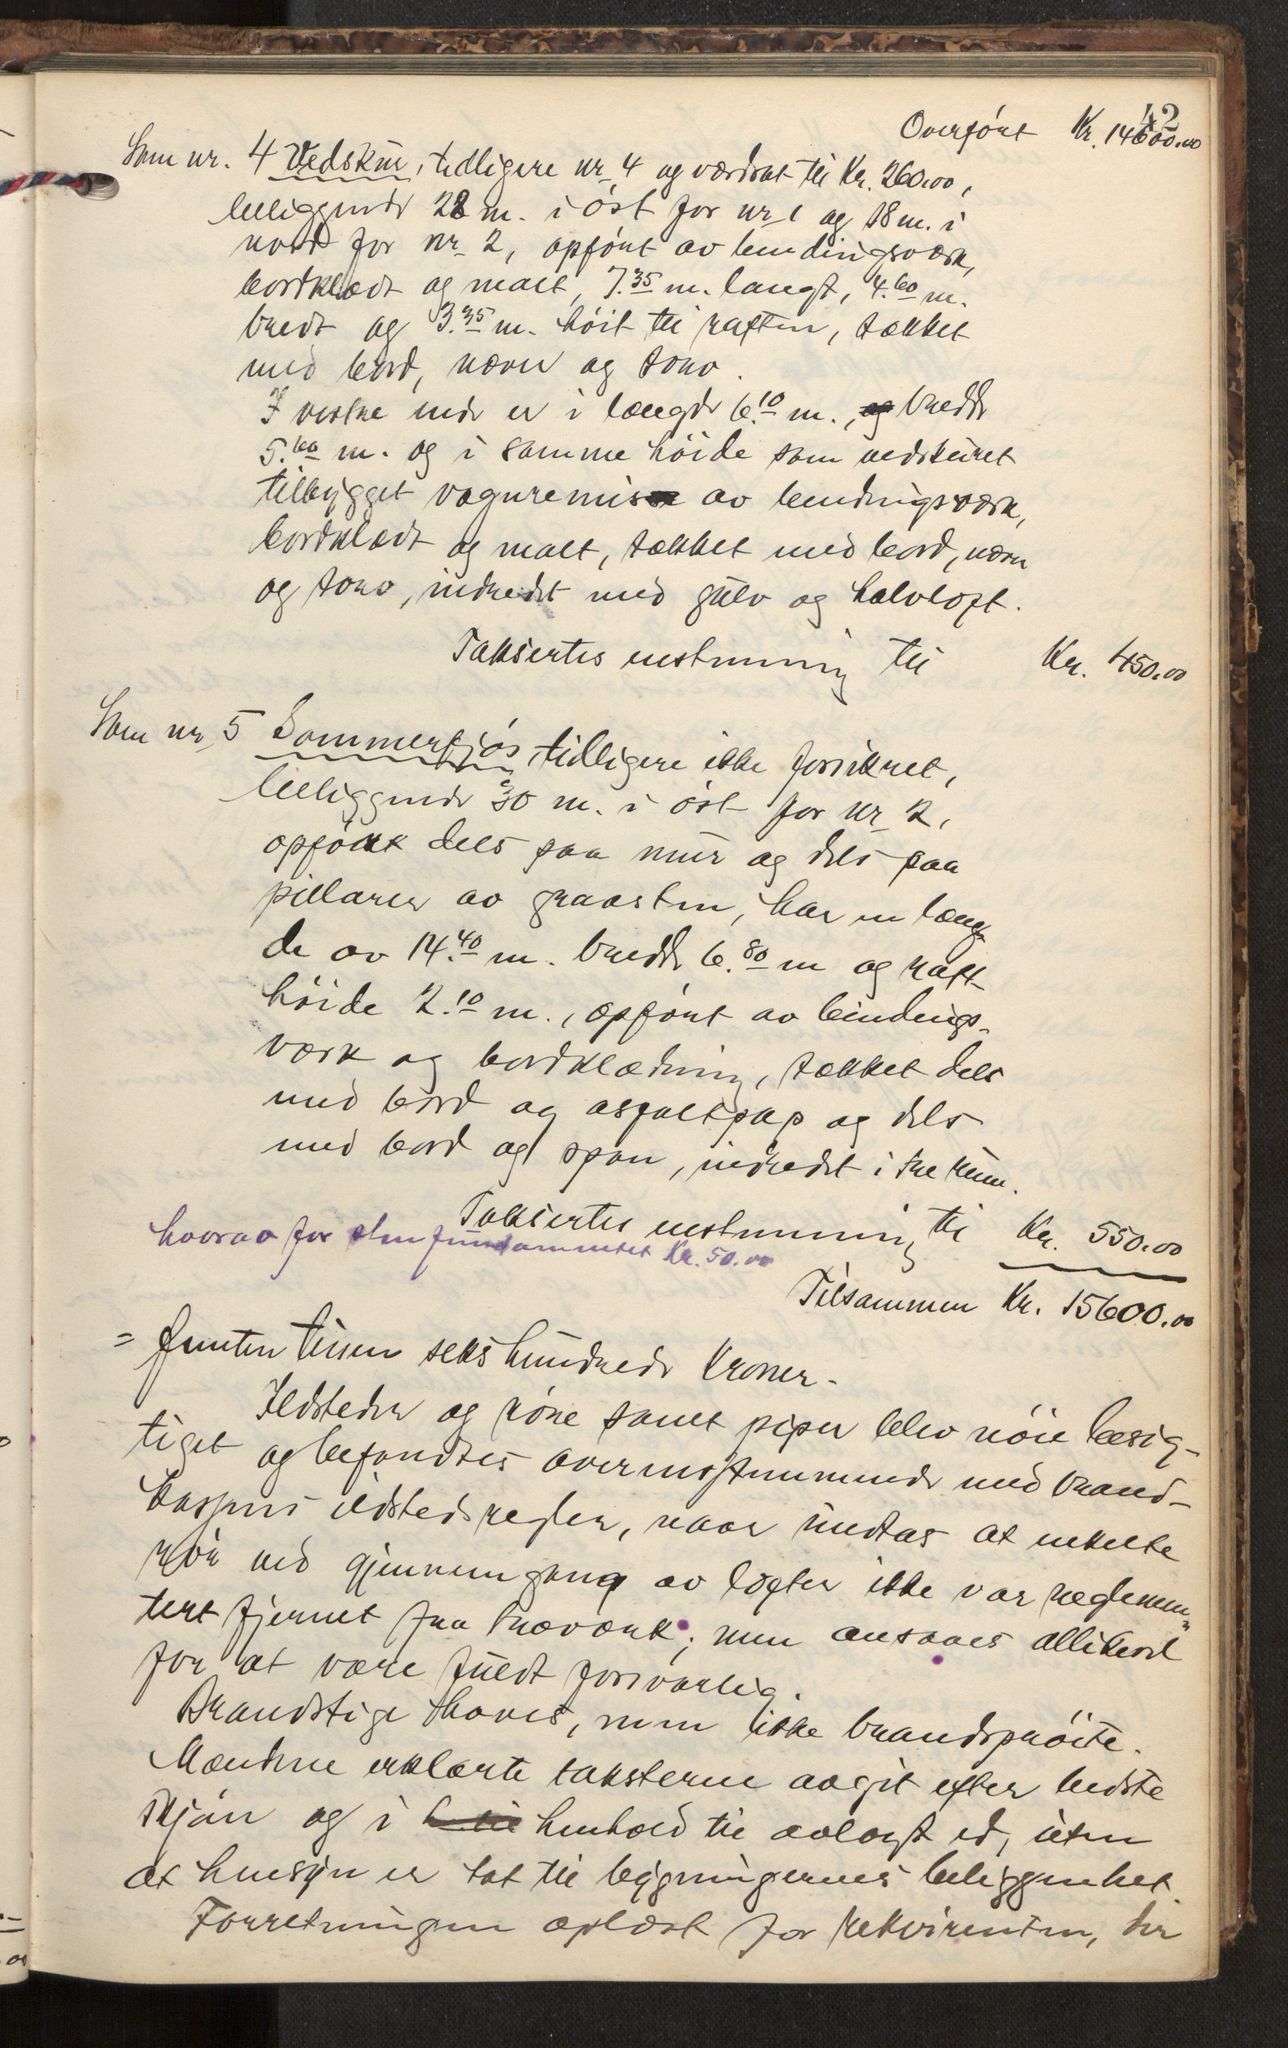 42
Overført Kr. 14600.00
Som nr. 4 Vedskur, tidligere nr 4 og værdsat til Kr. 260.00,
beliggende 22 m. i øst for nr 1 og 18 m. i
nord for nr 2, opført av bindingsverk,
bordklædt og malt, 7.35 m. langt, 4.60 m.
bredt og 3.35 m. høit til raften, tækket
med bord, næver og torv.
I vestre ende er i længde 6.10 m., og bredde
5.60 m. og i samme høide som vedskuret
tilbygget vognremisse av bindingsværk,
bordklædt og malt, tækket med bord, næver
og torv, indredet med gulv og halvloft.
Taksertes enstemmig til Kr. 450.00
Som nr 5 Sommerfjøs, tidligere ikke forsikret,
beliggende 30 m. i øst for nr 2,
opført dels paa mur og dels paa
pillarer av graasten, har en læng-
de av 14.40 m. bredde 6.80 m og raft-
høide 2.10 m., opført av bindings-
værk og bordklædning, tækket dels
med bord og asfaltpap og dels
med bord og spon, indredet i tre rum.
Taksertes enstemmig til Kr. 550.00
hvorav for stenfundamentet Kr. 50.00
Tilsammen Kr. 15600.00
= femten tusen seks hundrede Kroner.
Ildsteder og røre samt piper blev nøie besig-
tiget og befandtes overensstemmende med brand-
kassens ildstedsregler, naar undtas at enkelte
rør ved gjennemgang av lofter ikke var reglemen-
tert fjernet fra træverk; men ansaaes allikevel
for at være fuldt forsvarlig.
Brandstige haves, men ikke brandsprøite.
Mændene erklærte taksterne avgit efter bedste
skjøn og i henhold til avlagt ed, uten
at hensyn er tat til bygningernes beliggenhet.
Forretningen oplæst for rekvirenten, der